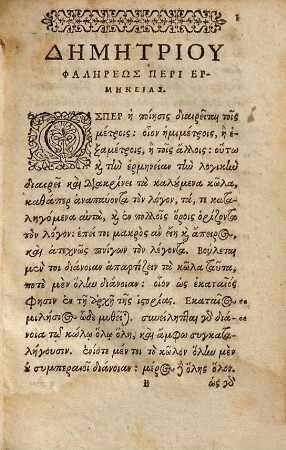 ΔΗΜΗΤΡΙΟΥ
ΦΑΛΗΡΕΩΣ ΠΕΡΙ ΕΡ-
ΜΗΝΕΙΑΣ.
ΩΣΠΕΡ ἡ ποίησις διαιρεῖται τοῖς
μέτροις· οἷον ἡμιμέτροις, ἢ ἑ-
ξαμέτροις, ἢ τοῖς ἄλλοις· οὕτω
καὶ τὴν ἑρμηνείαν τὴν λογικὴν
διαιρεῖ καὶ διακρίνει τὰ καλούμενα κῶλα,
καθάπερ ἀναπαύοντα τὸν λόγον, τά, τε κατα-
ληγόμενα αὐτὰ, καὶ ἐν πολλοῖς ὅροις ὁρίζοντα
τὸν λόγον· ἐπεί τοι μακρὸς ἂν εἴη καὶ ἄπειρος,
καὶ ἀτεχνῶς πνίγων τὸν λέγοντα. Βούλεται
μέντοι διάνοιαν ἀπαρτίζειν τὰ κῶλα ταῦτα,
ποτὲ μὲν ὅλην διάνοιαν· οἷον ὡς ἑκαταῖός
φησιν ἐν τῇ ἀρχῇ τῆς ἱστορίας. Ἑκαταῖος
μιλήσιος ὧδε μυθεῖται. συνείληπται γὰρ διά-
νοια τῷ κώλῳ ὅλῳ ὅλη, καὶ ἄμφω συγκατα-
λήγουσιν. ἐνίοτε μέν τοι τὸ κῶλον ὅλην μὲν
οὐ συμπεραιοῖ διάνοιαν· μέρος δὲ ὅλης ὅλον.
B ὡς γὰρ